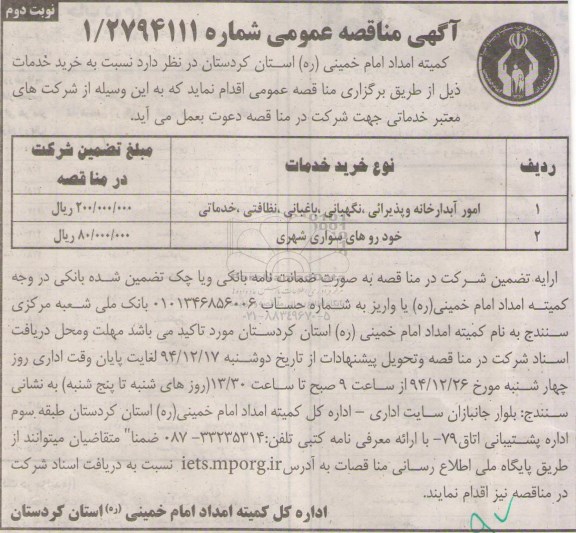 نوبت دوم
آگهی مناقصه عمومی شماره ۱/۲۷۹۴۱۱۱
کمیته امداد امام خمینی (ره) استان کردستان در نظر دارد نسبت به خرید خدمات
ذیل از طریق برگزاری منا قصه عمومی اقدام نماید که به این وسیله از شرکت های
معتبر خدماتی جهت شرکت در منا قصه دعوت بعمل می آید.
ردیف نوع خرید خدمات مبلغ تضمین شرکت
در منا قصه
۱ امور آبدارخانه وپذیرائی ،نگهبانی ،باغبانی ،نظافتی ،خدماتی ۲۰۰/۰۰۰/۰۰۰ ریال
۲ خود رو های سواری شهری ۸۰/۰۰۰/۰۰۰ ریال
ارایه تضمین شرکت در منا قصه به صورت ضمانت نامه بانکی ویا چک تضمین شده بانکی در وجه
کمیته امداد امام خمینی(ره) یا واریز به شماره حساب ۰۱۰۱۳۴۶۸۵۶۰۰۶ بانک ملی شعبه مرکزی
سنندج به نام کمیته امداد امام خمینی (ره) استان کردستان مورد تاکید می باشد مهلت ومحل دریافت
اسناد شرکت در منا قصه وتحویل پیشنهادات از تاریخ دوشنبه ۹۴/۱۲/۱۷ لغایت پایان وقت اداری روز
چهار شنبه مورخ ۹۴/۱۲/۲۶ از ساعت ۹ صبح تا ساعت ۱۳/۳۰(روز های شنبه تا پنج شنبه) به نشانی
سنندج: بلوار جانبازان سایت اداری – اداره کل کمیته امداد امام خمینی(ره) استان کردستان طبقه سوم
اداره پشتیبانی اتاق۷۹- با ارائه معرفی نامه کتبی تلفن:۳۳۲۳۵۳۱۴- ۰۸۷ ضمنا" متقاضیان میتوانند از
طریق پایگاه ملی اطلاع رسانی منا قصات به آدرس iets.mporg.ir نسبت به دریافت اسناد شرکت
در مناقصه نیز اقدام نمایند.
اداره کل کمیته امداد امام خمینی (ره) استان کردستان